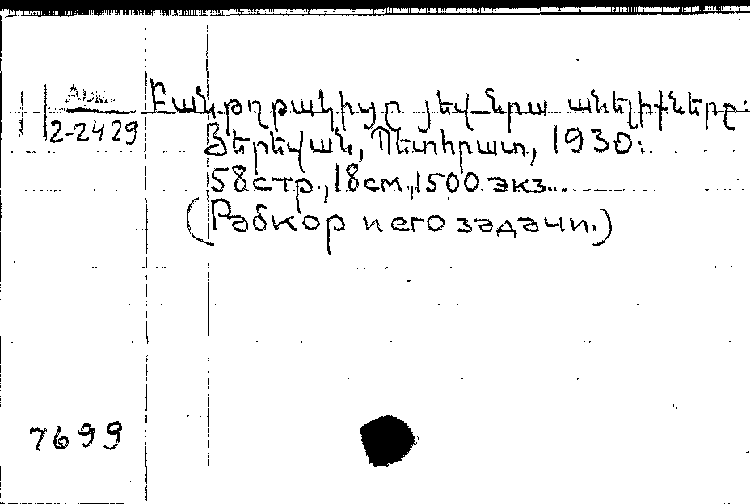 Арм.
2-2429
Բանթղթակիցը յեվ նրա անելիքները:
Յերեվան, Պետհրատ, 1930:
58 стр., 18 см., 1500 экз...
(Рабкор и его задачи.)
7699